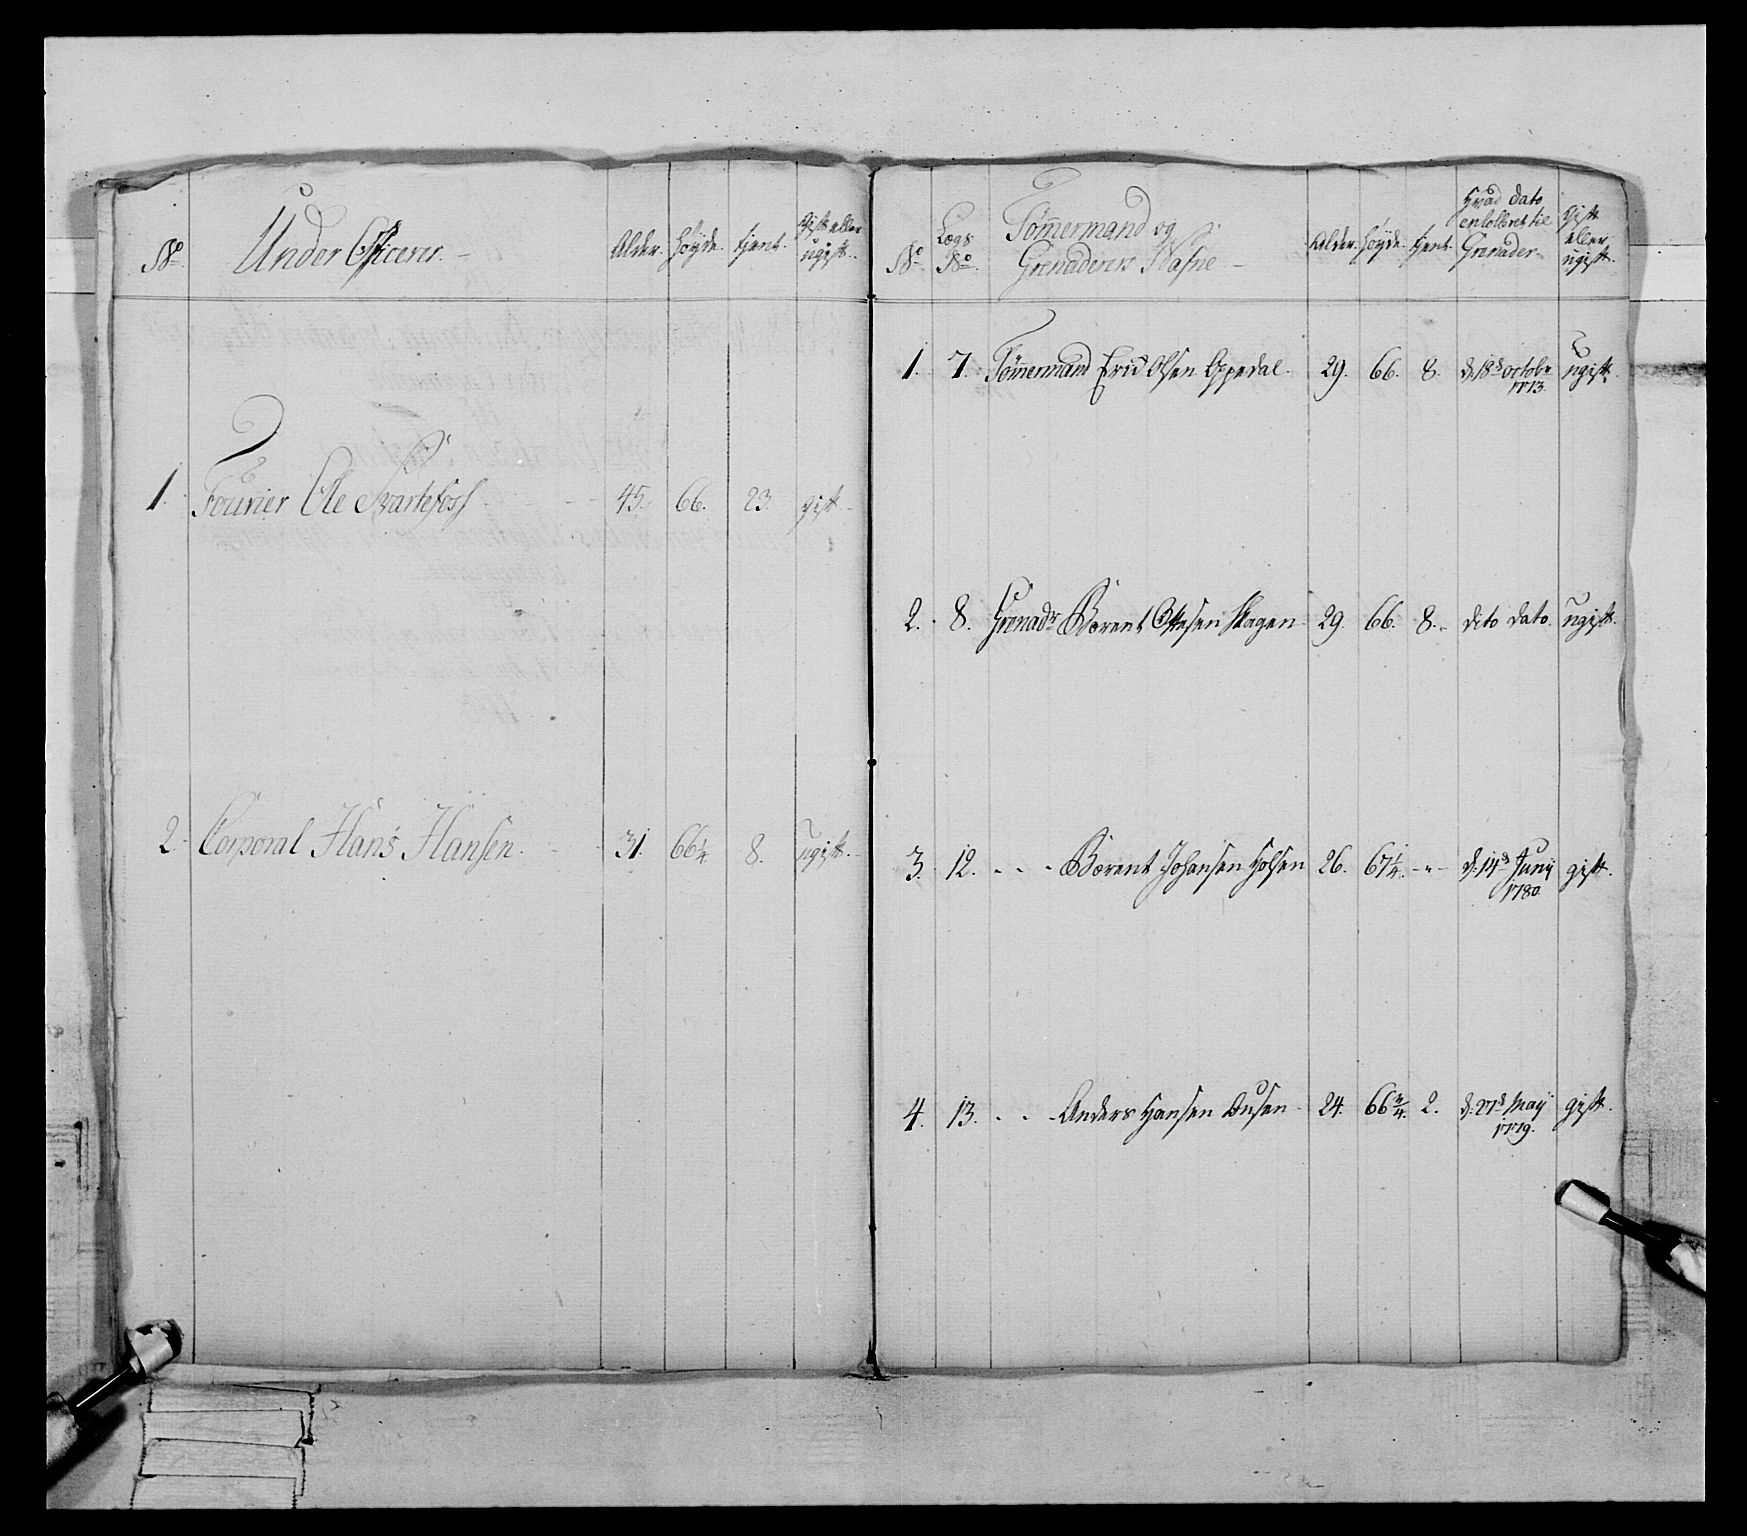 No Under Officerer. Alder. Høyde. tjent. Gift eller ugift.
1. Fourier Ole Svartefoss 45. 66. 23. gift.
2. Corporal Hans Hansen. 31. 66 1/4. 8. ugift.
No Lægs No Tømmermand og Grenaderers Nafne Alder. Høyde. tjent. Hvad dato enrolleret til Grenader. Gift eller ugift.
1. 7. Tømmermand Erich Olsen Oppedal. 29. 66. 8. d: 18d octobr 1773. ugift.
2. 8. Grenadr Bærent Ottesen Skagen 29. 66. 8. dito dato. ugift.
3. 12. - - - Bærent Johansen Holsen 26. 67 1/4. - " - d: 14d Junij 1780. gift.
4. 13. - - - Anders Hansen 24. 66 3/4. 2. d: 27d Maij 1779. gift.